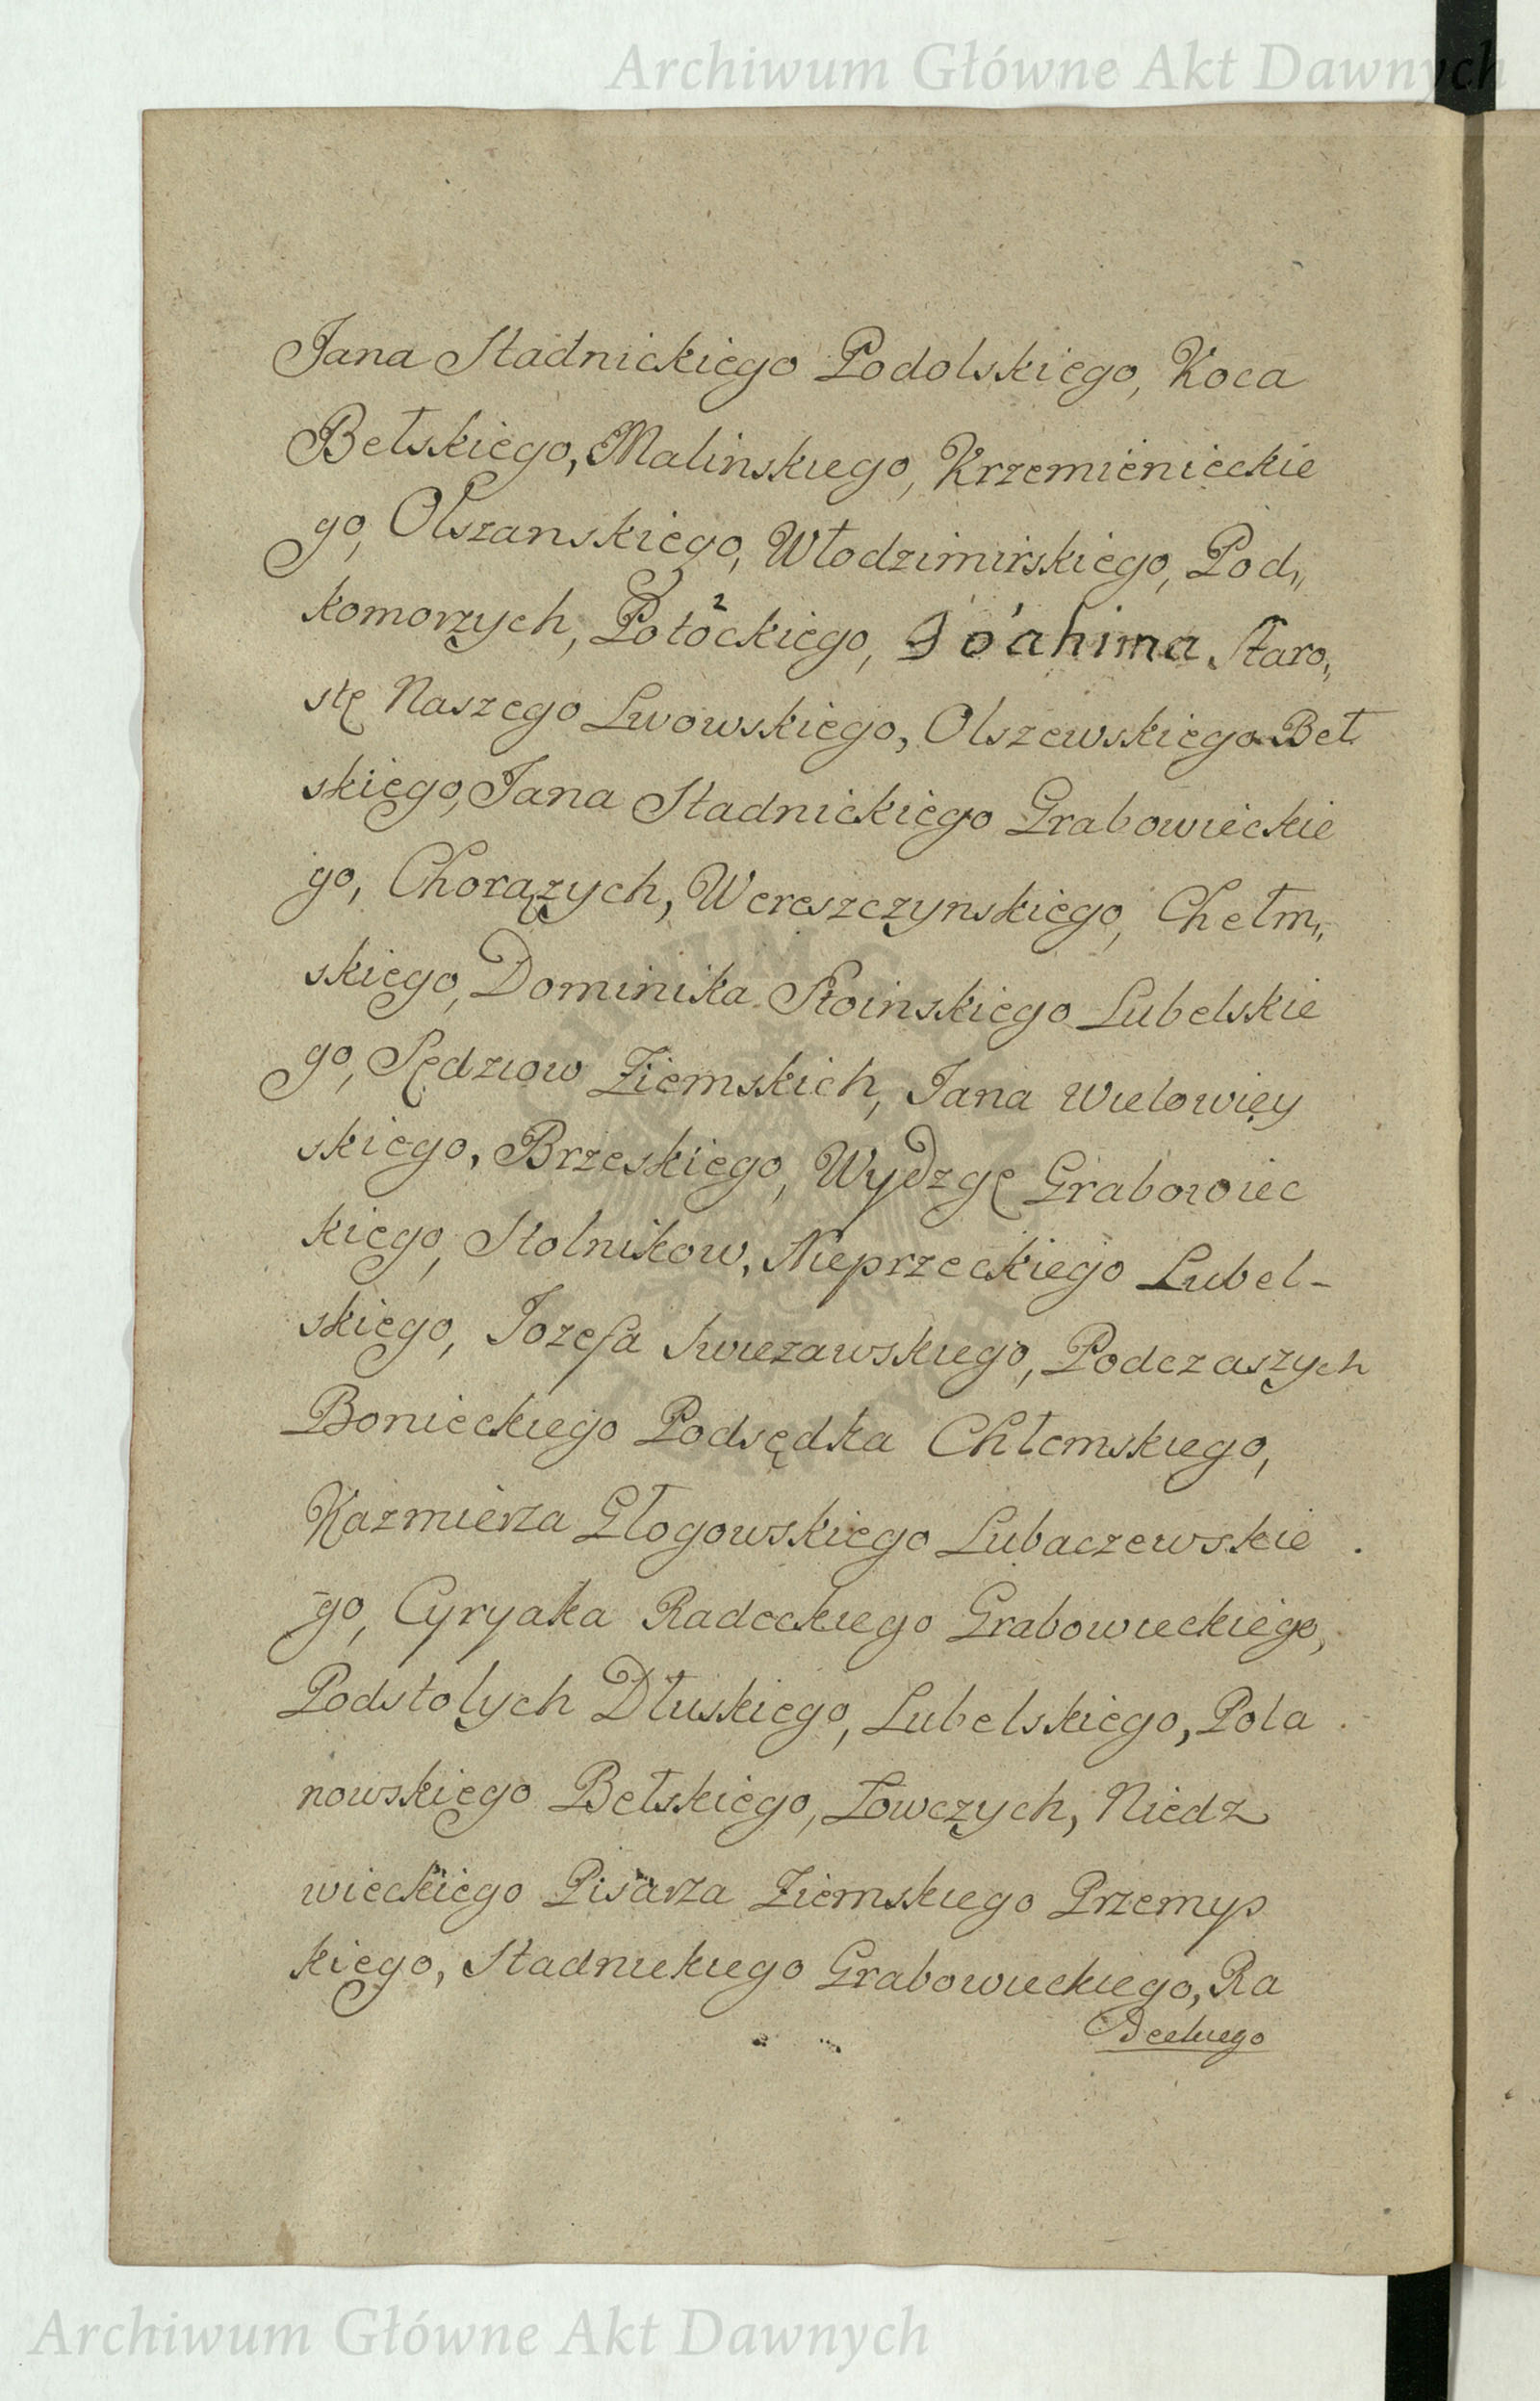 Archiwum Główne Akt Dawnych
Jana Stadnickiego Podolskiego, Koca
Bełskiego, Malinskiego, Krzemienieckie
go, Olszanskiego, Włodzimirskiego, Pod„
komorzych, Potockiego, Joahima Staro„
stę Naszego Lwowskiego, Olszewskiego Beł
skiego, Jana Stadnickiego Grabowieckie
go, Chorązych, Wereszczynskiego, Chełm„
skiego, Dominika Stoinskiego Lubelskie
go, Sędziow Ziemskich, Jana Wielowiey
skiego, Brzeskiego, Wydzgę Grabowiec
kiego, Stolnikow, Nieprzeckiego Lubel-
skiego, Jozefa Swiezawskiego, Podczaszych
Bonieckiego Podsędka Chłemskiego,
Kazmierza Głogowskiego Lubaczewskie
go, Cyryaka Radeckiego Grabowieckiego,
Podstolych Dłuskiego, Lubelskiego, Pola
nowskiego Bełskiego, Łowczych, Niedz
wieckiego Pisarza Ziemskiego Przemys
kiego, Stadnickiego Grabowieckiego, Ra
deckiego
Archiwum Główne Akt Dawnych